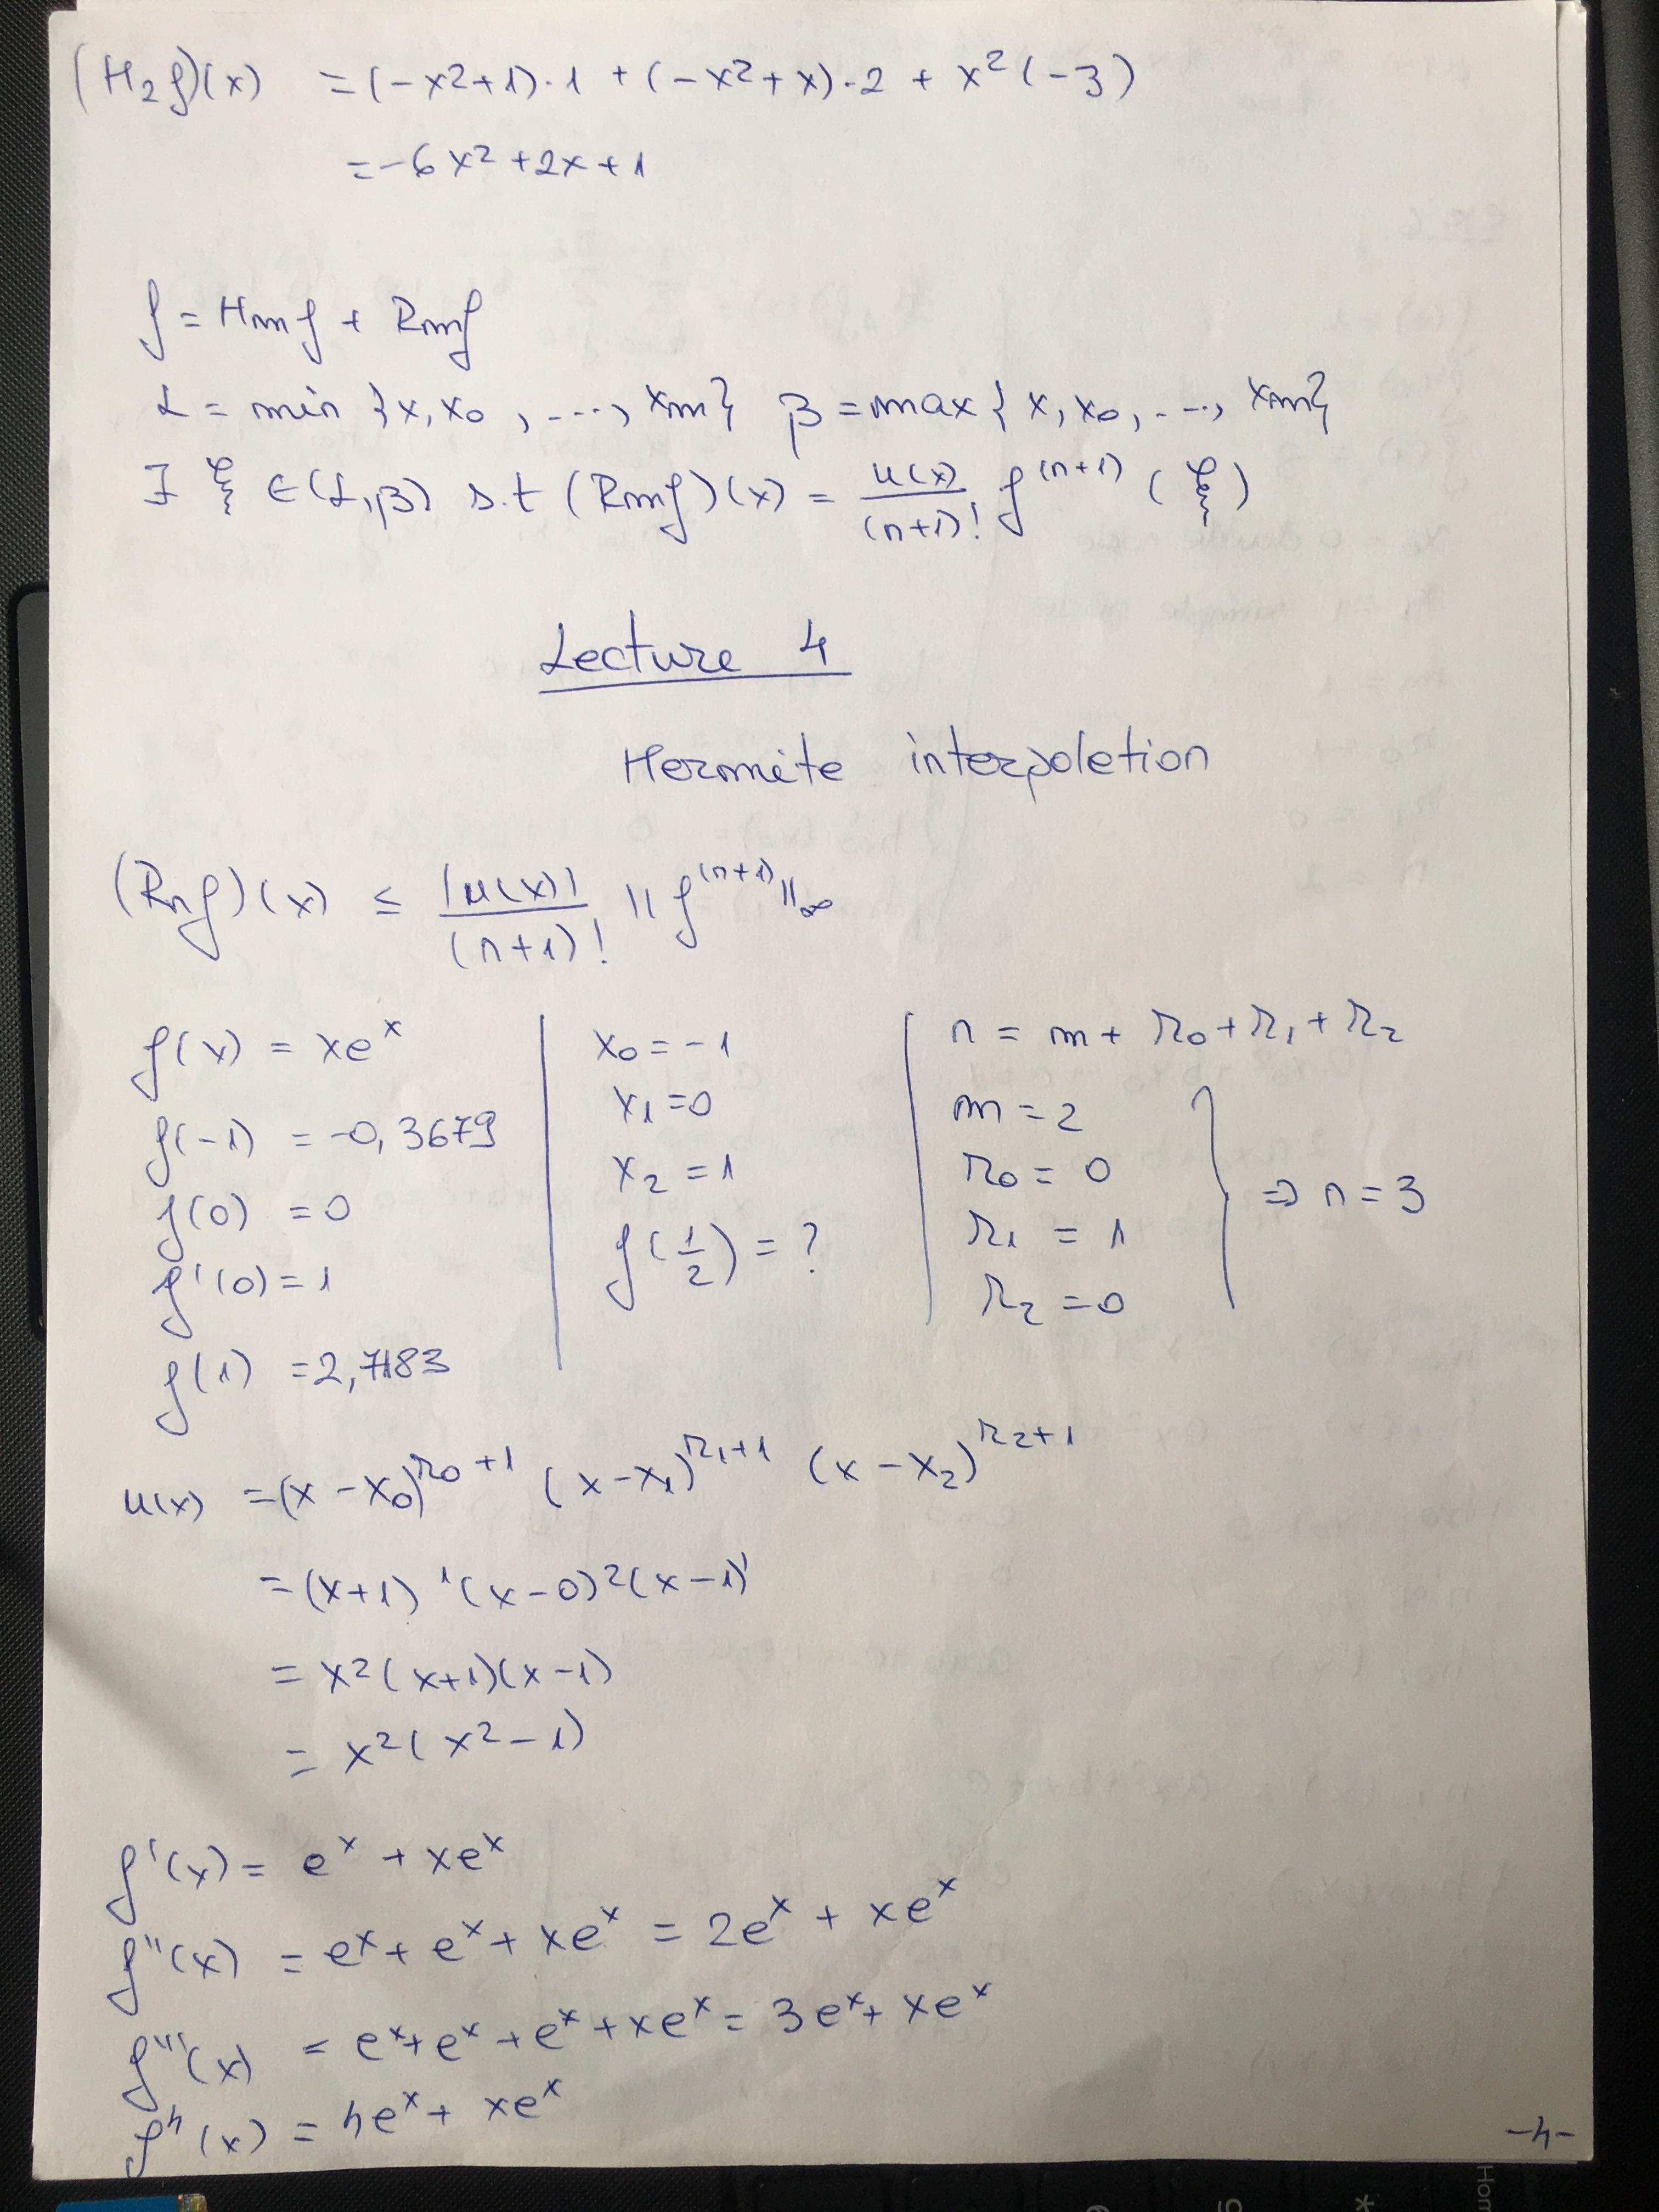 (H₂f)(x) = (-x²+1)·1 + (-x²+x)·2 + x²(-3)
= -6x² + 2x + 1
f = Hmf + Rmf
α = min {x, x₀, ..., xm} β = max {x, x₀, ..., xm}
∃ ξ ∈ (α, β) s.t (Rmf)(x) = u(x)/(n+1)! f⁽ⁿ⁺¹⁾(ξ)
Lecture 4
Hermite interpoletion
(Rnf)(x) ≤ |u(x)|/(n+1)! ||f⁽ⁿ⁺¹⁾||∞
f(x) = xeˣ
f(-1) = -0,3679
f(0) = 0
f'(0) = 1
f(1) = 2,7183
x₀ = -1
x₁ = 0
x₂ = 1
f(1/2) = ?
n = m + r₀ + r₁ + r₂
m = 2
r₀ = 0
r₁ = 1
r₂ = 0
⇒ n = 3
u(x) = (x - x₀)^(r₀+1) (x - x₁)^(r₁+1) (x - x₂)^(r₂+1)
= (x+1)¹(x-0)²(x-1)¹
= x²(x+1)(x-1)
= x²(x²-1)
f'(x) = eˣ + xeˣ
f''(x) = eˣ + eˣ + xeˣ = 2eˣ + xeˣ
f'''(x) = eˣ + eˣ + eˣ + xeˣ = 3eˣ + xeˣ
f⁴(x) = 4eˣ + xeˣ
-4-